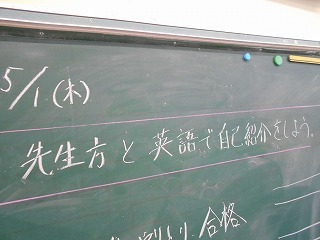 5/1(木)
先生方と英語で自己紹介をしよう。
合格